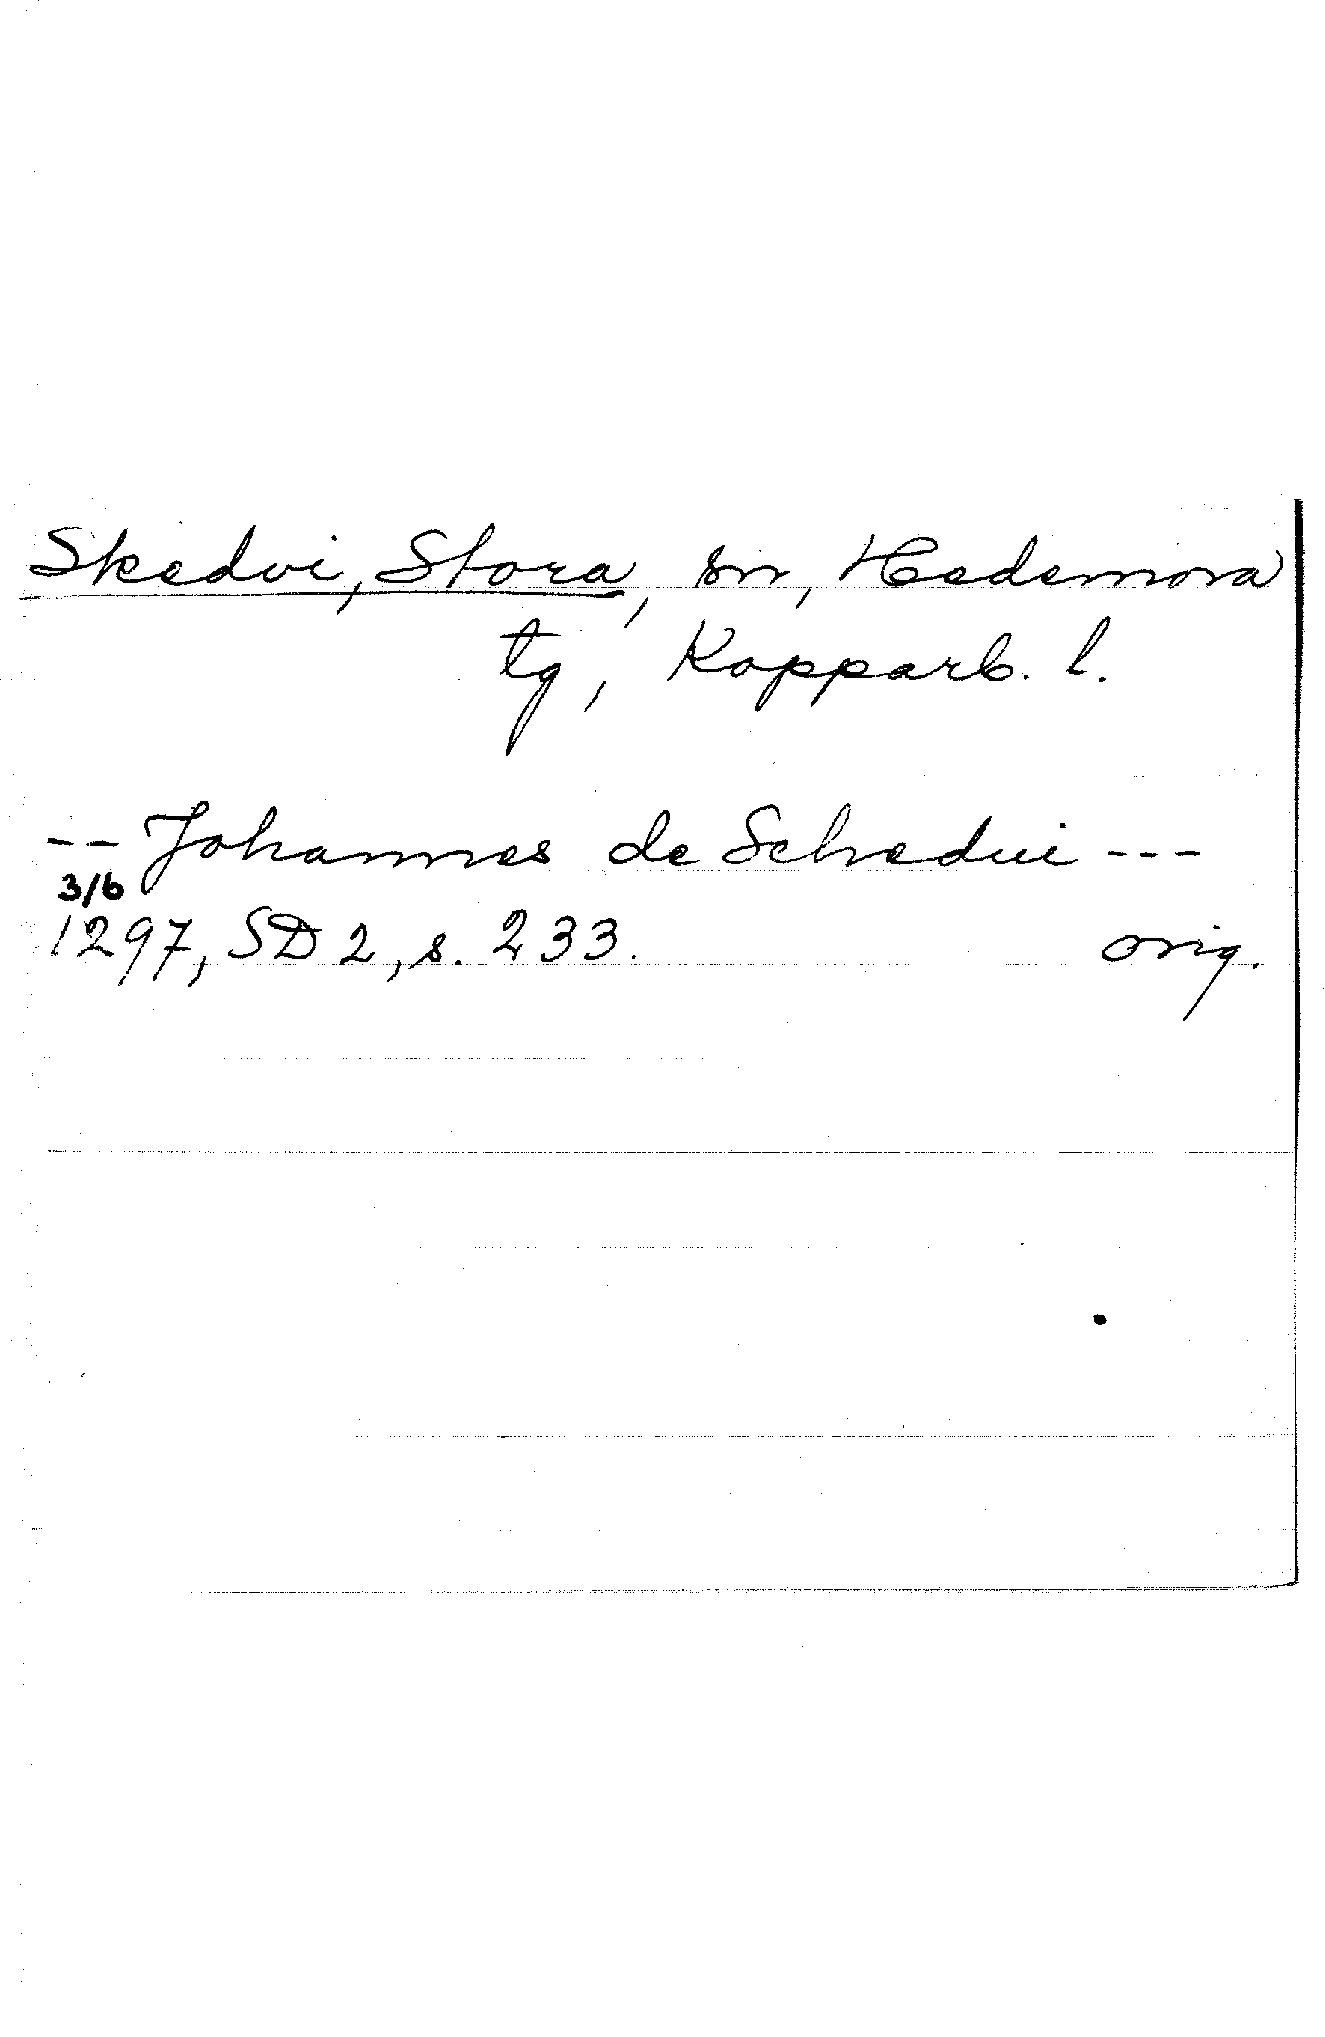 Skedvi, Stora, sn, Hedemora
tg, Kopparb. l.
-- Johannes de Schedui ---
3/6
1297, SD 2, s. 233. orig.